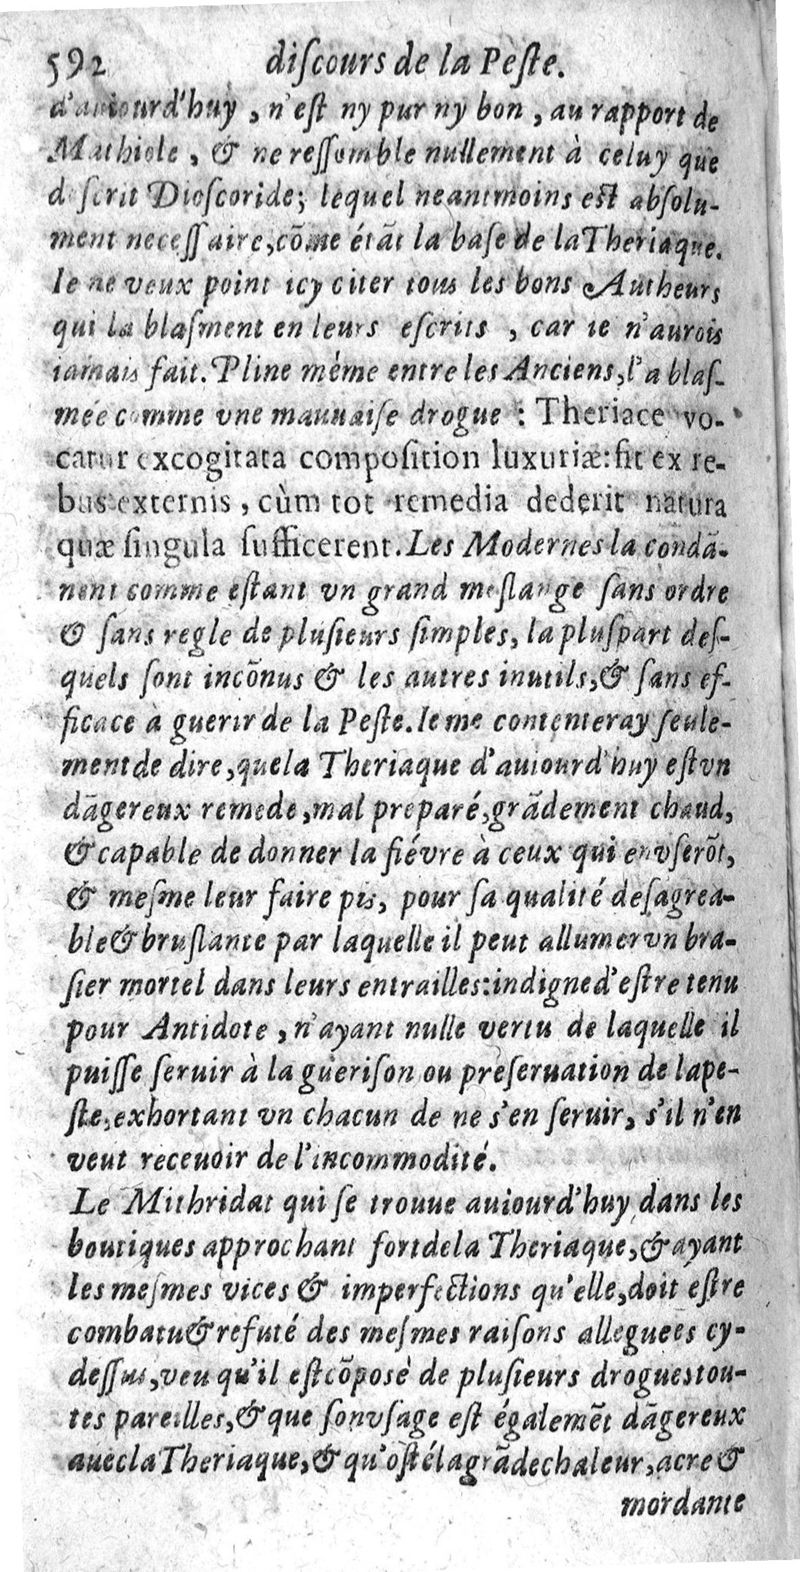 592 discours de la Peste.
d'auiourd'huy, n'est ny pur ny bon, au rapport de
Mathiole, & ne ressemble nullement à celuy que
descrit Dioscoride; lequel neantmoins est absolu-
ment necessaire, cõme étãt la base de la Theriaque.
Ie ne veux point icy citer tous les bons Autheurs
qui la blasment en leurs escrits, car ie n'aurois
iamais fait. Pline méme entre les Anciens, l'a blas-
mée comme vne mauuaise drogue : Theriace vo-
catur excogitata composition luxuriæ: fit ex re-
bus externis, cùm tot remedia dederit natura
quæ singula sufficerent. Les Modernes la condã-
nent comme estant vn grand meslange sans ordre
& sans regle de plusieurs simples, la pluspart des-
quels sont incõnus & les autres inutils, & sans ef-
ficace à guerir de la Peste. Ie me contenteray seule-
ment de dire, que la Theriaque d'auiourd'huy est vn
dãgereux remede, mal preparé, grãdement chaud,
& capable de donner la fiévre à ceux qui en vserõt,
& mesme leur faire pis, pour sa qualité desagrea-
ble & bruslante par laquelle il peut allumer vn bra-
sier mortel dans leurs entrailles: indigne d'estre tenu
pour Antidote, n'ayant nulle vertu de laquelle il
puisse seruir à la guerison ou preseruation de la pe-
ste, exhortant vn chacun de ne s'en seruir, s'il n'en
veut receuoir de l'incommodité.
Le Mithridat qui se trouue auiourd'huy dans les
boutiques approchant fort de la Theriaque, & ayant
les mesmes vices & imperfections qu'elle, doit estre
combatu & refuté des mesmes raisons alleguees cy-
dessus, veu qu'il est cõposè de plusieurs drogues tou-
tes pareilles, & que son vsage est égalemẽt dãgereux
auec la Theriaque, & qu'osté la grãde chaleur, acre &
mordante